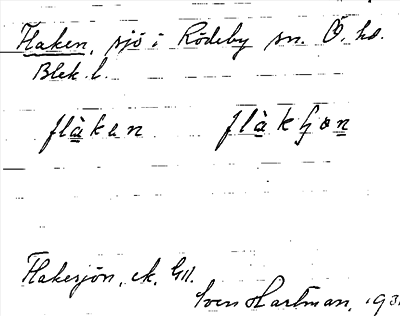 Flaken, sjö i Rödeby sn. Ö. hd.
Blek. l.
flàken flàkʃʃon
Flakesjön, ek. Gll.
Sven Hartman, 193